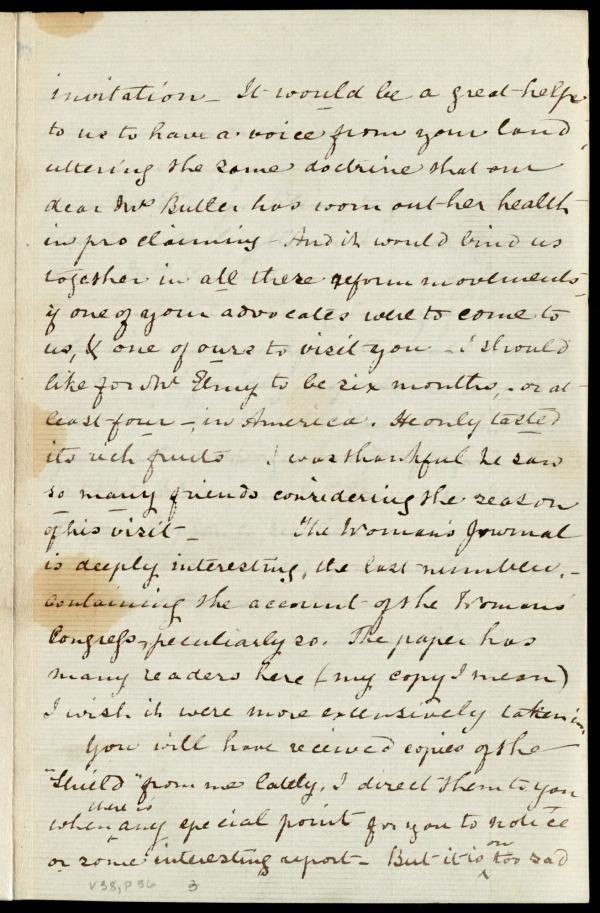 invitation - It would be a great help
to us to have a voice from your land,
uttering the same doctrine that our
dear Mrs Butler has worn out her health
in proclaiming - And it would bind us
together in all these reform movements -
if one of your advocates were to come to
us, & one of ours to visit you - I should
like for Mr Elmy to be six months, - or at
least four - in America. He only tasted
its rich fruits I was thankful he saw
so many friends considering the season
of his visit - The Woman's Journal
is deeply interesting, the last number, -
containing the account of the Womans'
Congress, peculiarly so. The paper has
many readers here (my copy I mean)
I wish it were more extensively taken in.
You will have received copies of the
"Shield" from me lately. I direct them to you
when there is any special point for you to notice
or some interesting report - But it is on too sad
V38, P36 3